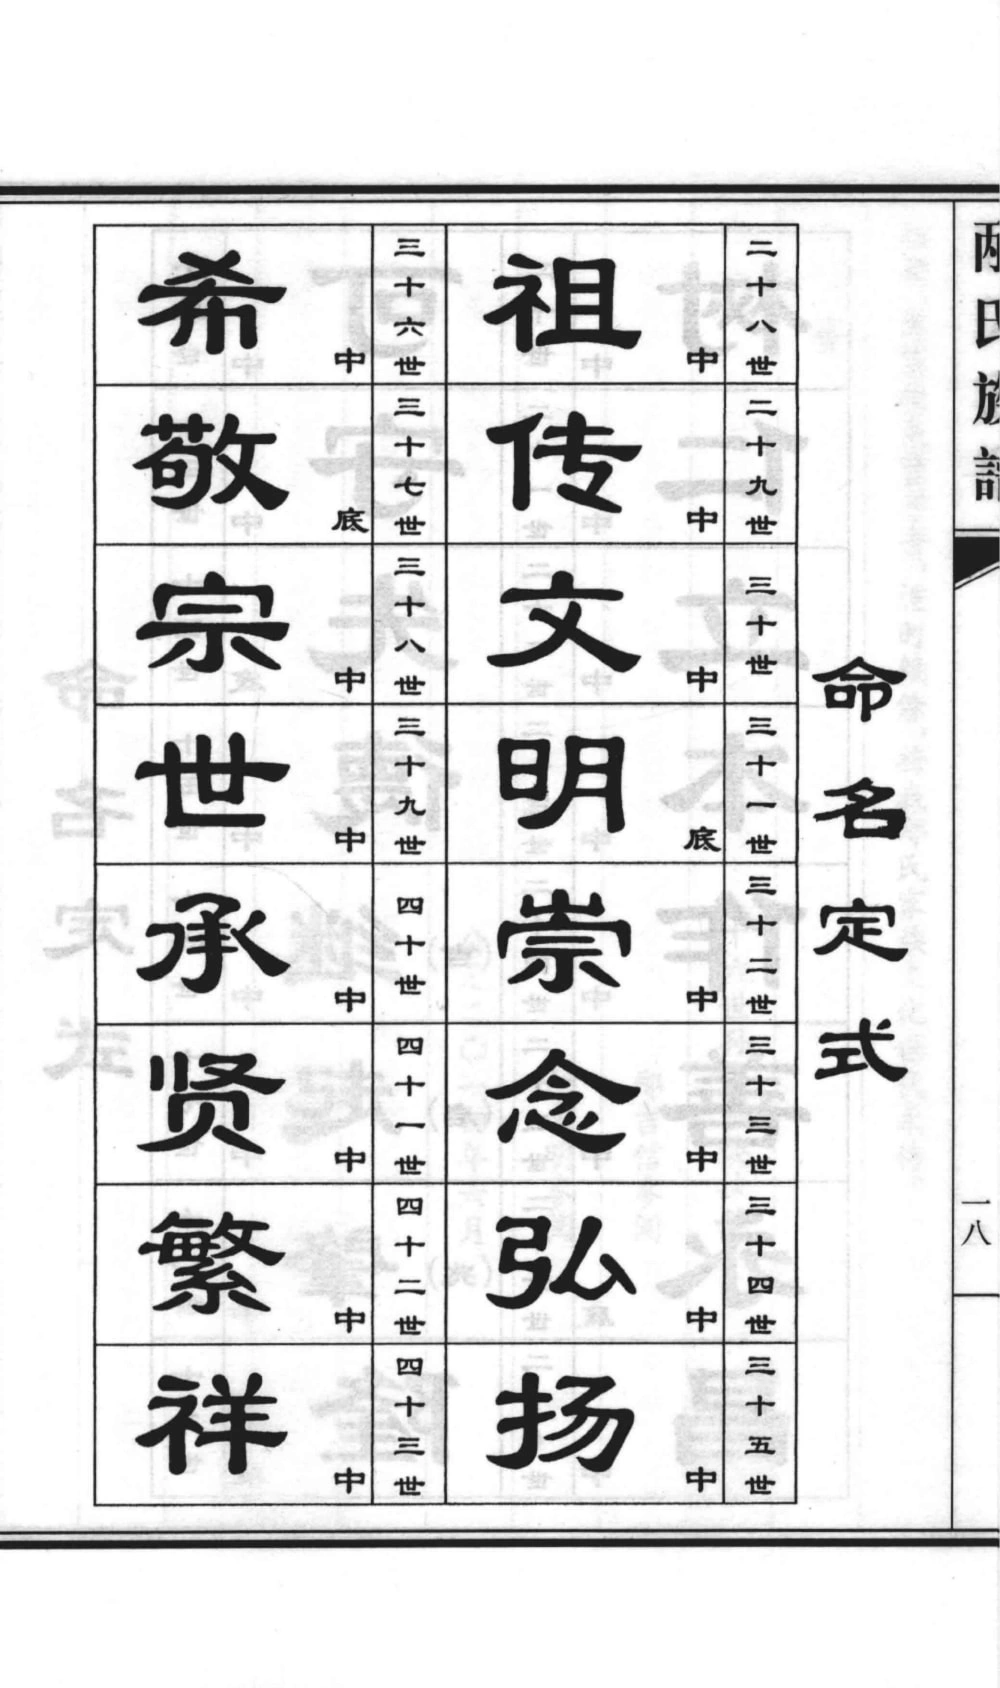 氏族谱
一八
命名定式
二十八世 祖 中
二十九世 传 中
三十世 文 中
三十一世 明 底
三十二世 崇 中
三十三世 念 中
三十四世 弘 中
三十五世 扬 中
三十六世 希 中
三十七世 敬 底
三十八世 宗 中
三十九世 世 中
四十世 承 中
四十一世 贤 中
四十二世 繁 中
四十三世 祥 中